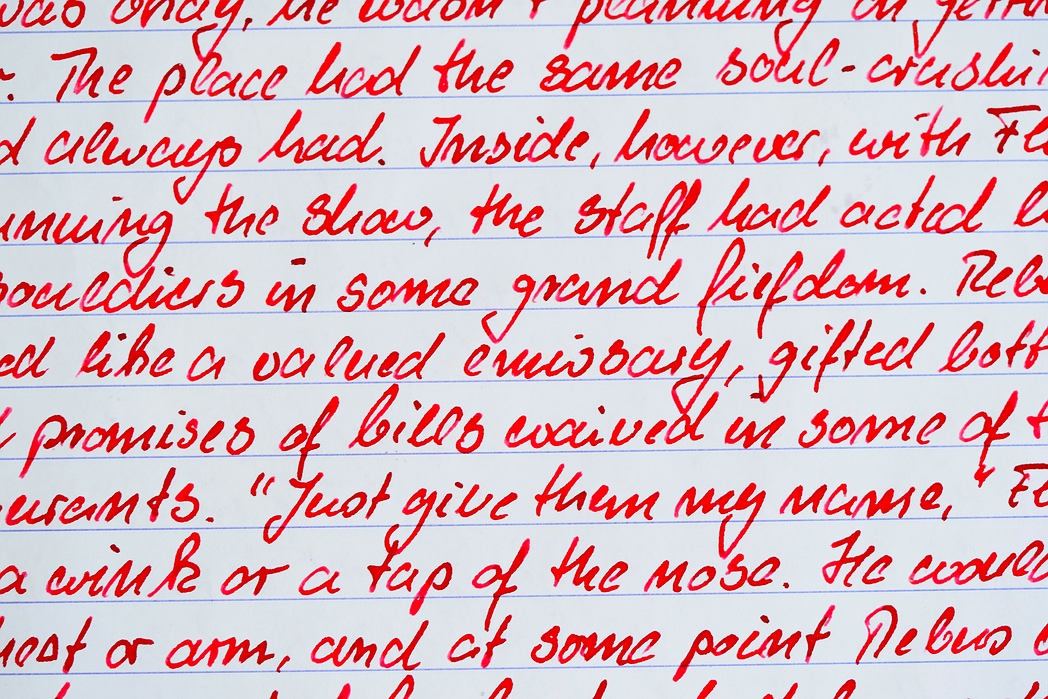 was okay, he wasn't planning on
. The place had the same soul-crushi
d always had. Inside, however, with Fe
unning the show, the staff had acted l
souldiers in some grand fiefdom. Reb
ed like a valued emissary, gifted bott
promises of bills waived in some of t
urants. "Just give them my name," Fe
a wink or a tap of the nose. He would
hest or arm, and at some point Rebus